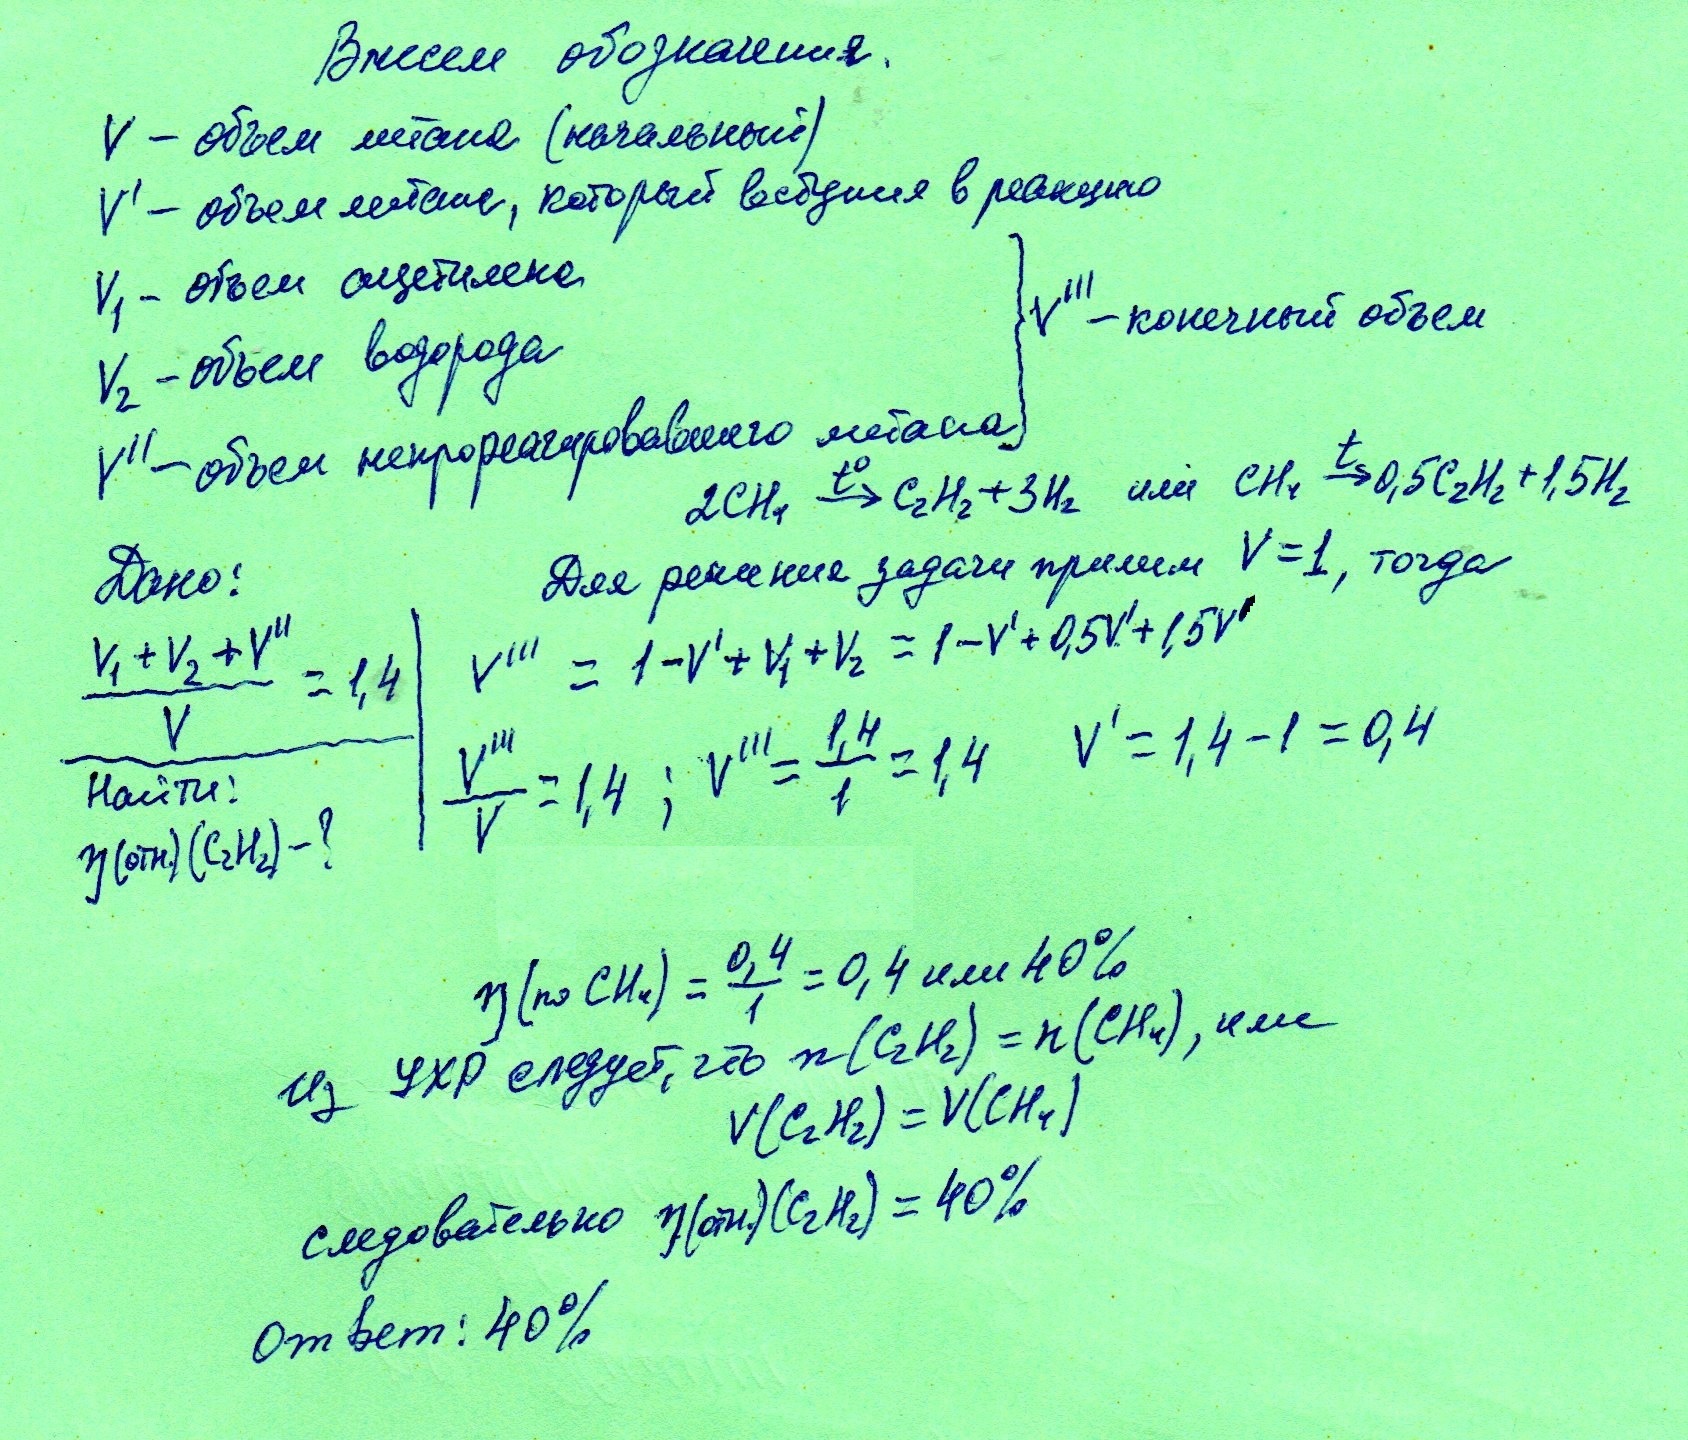 Внесем обозначения.
V – объем метана (начальный)
V' – объем метана, который вступил в реакцию
V₁ – объем ацетилена
V₂ – объем водорода
V'' – объем непрореагировавшего метана
} V''' – конечный объем
2CH₄ →t° C₂H₂ + 3H₂ или CH₄ →t 0,5C₂H₂ + 1,5H₂
Дано:
(V₁ + V₂ + V'')/V = 1,4
Найти:
η(отн.)(C₂H₂) – ?
Для решения задачи примем V = 1, тогда
V''' = 1 – V' + V₁ + V₂ = 1 – V' + 0,5V' + 1,5V'
V'''/V = 1,4 ; V''' = 1,4/1 = 1,4 V' = 1,4 – 1 = 0,4
η(по CH₄) = 0,4/1 = 0,4 или 40%
Из УХР следует, что n(C₂H₂) = n(CH₄), или
V(C₂H₂) = V(CH₄)
следовательно η(отн.)(C₂H₂) = 40%
Ответ: 40%